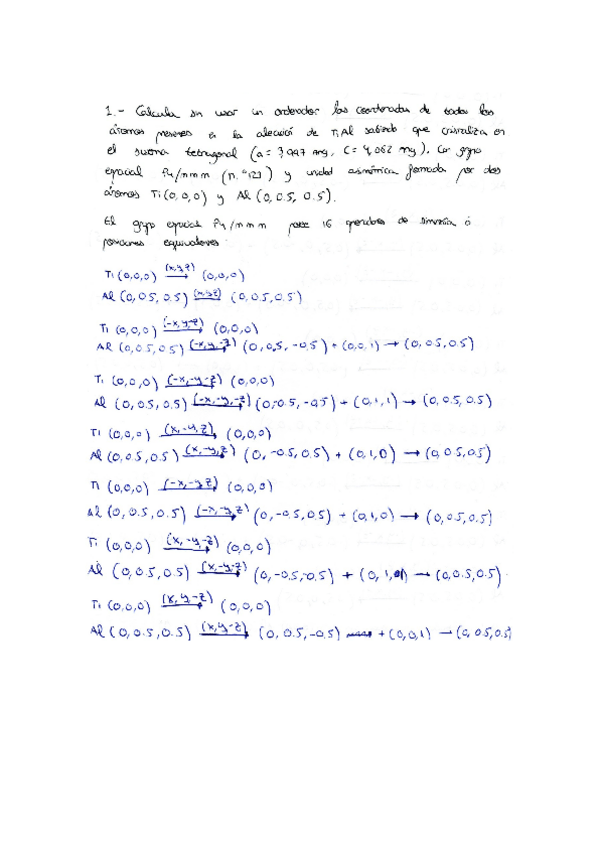 1.- Calcula sin usar un ordenador las coordenadas de todos los
átomos presentes en la aleación de TiAl sabiendo que cristaliza en
el sistema tetragonal (a = 3,997 Ang, c = 4,062 Ang). Con grupo
espacial P4/mmm (n.º 123) y unidad asimétrica formada por dos
átomos Ti (0,0,0) y Al (0, 0.5, 0.5).
El grupo espacial P4/mmm posee 16 operadores de simetría o
posiciones equivalentes:
Ti (0,0,0) (x,y,z) → (0,0,0)
Al (0, 0.5, 0.5) (x,y,z) → (0, 0.5, 0.5)
Ti (0,0,0) (-x,y,-z) → (0,0,0)
Al (0, 0.5, 0.5) (-x,y,-z) → (0, 0.5, -0.5) + (0,0,1) → (0, 0.5, 0.5)
Ti (0,0,0) (-x,-y,-z) → (0,0,0)
Al (0, 0.5, 0.5) (-x,-y,-z) → (0, -0.5, -0.5) + (0,1,1) → (0, 0.5, 0.5)
Ti (0,0,0) (x,-y,z) → (0,0,0)
Al (0, 0.5, 0.5) (x,-y,z) → (0, -0.5, 0.5) + (0,1,0) → (0, 0.5, 0.5)
Ti (0,0,0) (-x,-y,z) → (0,0,0)
Al (0, 0.5, 0.5) (-x,-y,z) → (0, -0.5, 0.5) + (0,1,0) → (0, 0.5, 0.5)
Ti (0,0,0) (x,-y,-z) → (0,0,0)
Al (0, 0.5, 0.5) (x,-y,-z) → (0, -0.5, -0.5) + (0,1,1) → (0, 0.5, 0.5)
Ti (0,0,0) (x,y,-z) → (0,0,0)
Al (0, 0.5, 0.5) (x,y,-z) → (0, 0.5, -0.5) + (0,0,1) → (0, 0.5, 0.5)